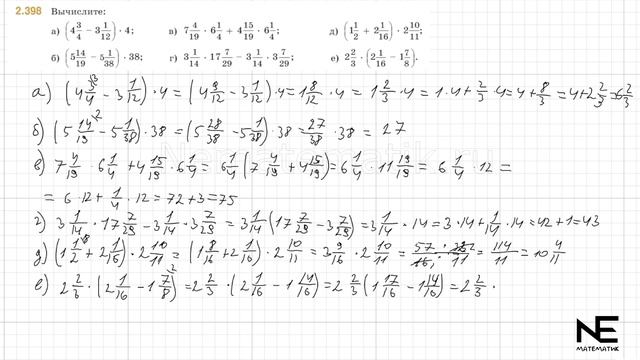 2.398 Вычислите:
а) (4 3/4 − 3 1/12) · 4; в) 7 4/19 · 6 1/4 + 4 15/19 · 6 1/4; д) (1 1/2 + 2 1/16) · 2 10/11;
б) (5 14/19 − 5 1/38) · 38; г) 3 1/14 · 17 7/29 − 3 1/14 · 3 7/29; е) 2 2/3 · (2 1/16 − 1 7/8).
а) (4 3/4 − 3 1/12) · 4 = (4 9/12 − 3 1/12) · 4 = 1 8/12 · 4 = 1 2/3 · 4 = 1 · 4 + 2/3 · 4 = 4 + 8/3 = 4 + 2 2/3 = 6 2/3
б) (5 14/19 − 5 1/38) · 38 = (5 28/38 − 5 1/38) · 38 = 27/38 · 38 = 27
в) 7 4/19 · 6 1/4 + 4 15/19 · 6 1/4 = 6 1/4 (7 4/19 + 4 15/19) = 6 1/4 · 11 19/19 = 6 1/4 · 12 =
= 6 · 12 + 1/4 · 12 = 72 + 3 = 75
г) 3 1/14 · 17 7/29 − 3 1/14 · 3 7/29 = 3 1/14 (17 7/29 − 3 7/29) = 3 1/14 · 14 = 3 · 14 + 1/14 · 14 = 42 + 1 = 43
д) (1 1/2 + 2 1/16) · 2 10/11 = (1 8/16 + 2 1/16) · 2 10/11 = 3 9/16 · 2 10/11 = = 114/11 = 10 4/11
е) 2 2/3 · (2 1/16 − 1 7/8) = 2 2/3 · (2 1/16 − 1 14/16) = 2 2/3 (1 17/16 − 1 14/16) = 2 2/3 ·
NE
МАТЕМАТИК